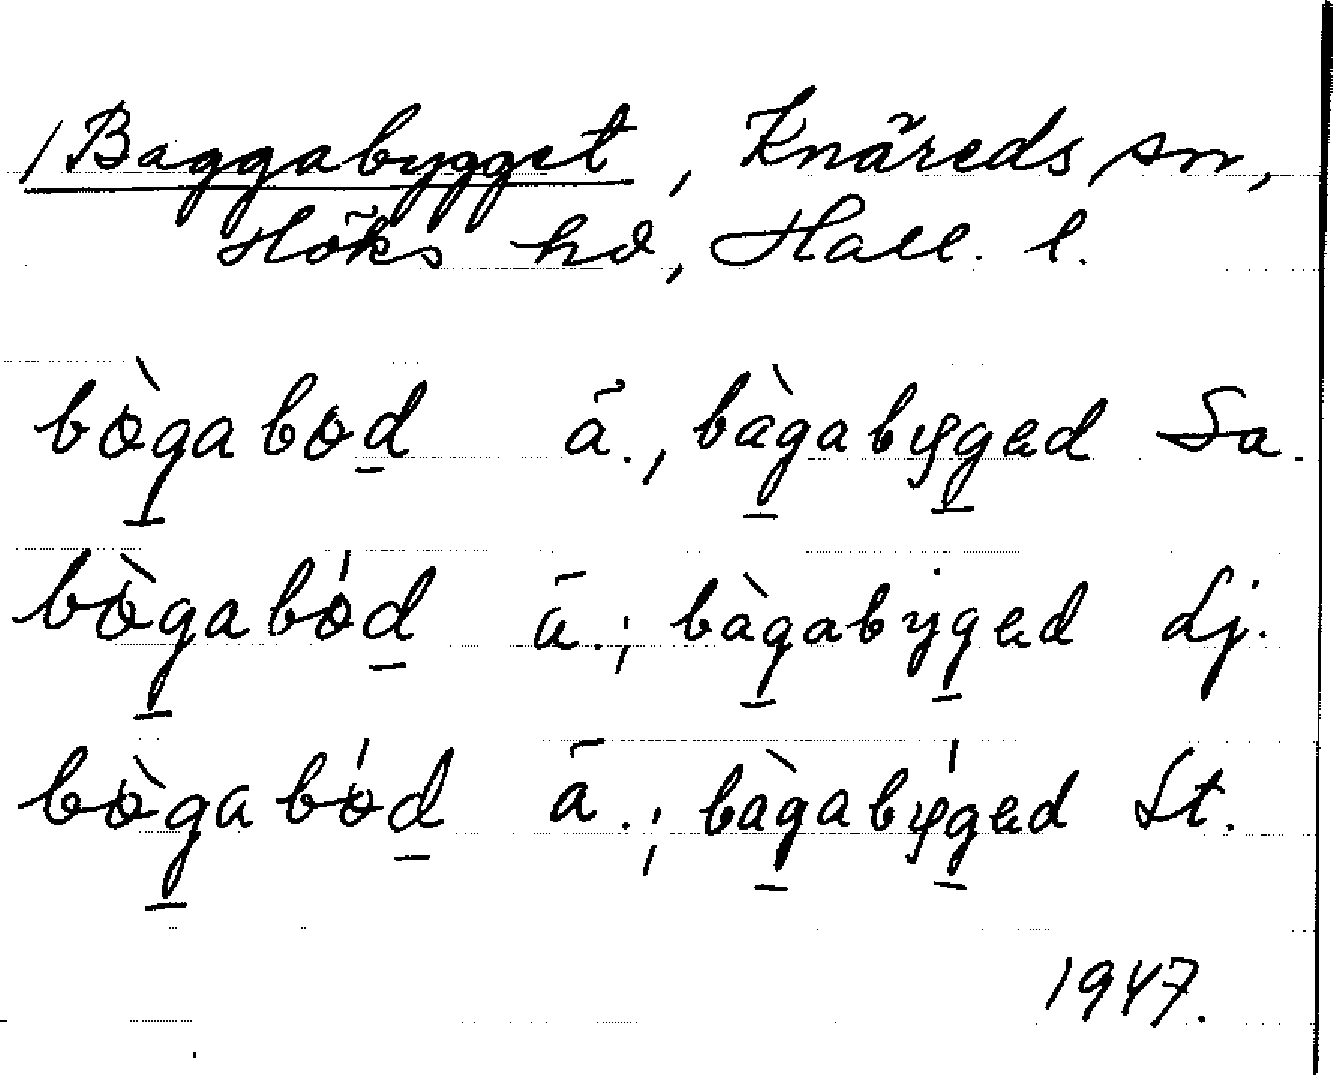 / Baggabygget, Knäreds sn,
Höks hd, Hall. l.
bɵ̀g̠abɵd̠ ä., bàg̠abyg̠ed Sa.
bɵ̀g̠abɵ́d̠ ä.; bàg̠abyg̠ed Lj.
bɵ̀g̠abɵ́d̠ ä.; bàg̠abýg̠ed St.
1947.